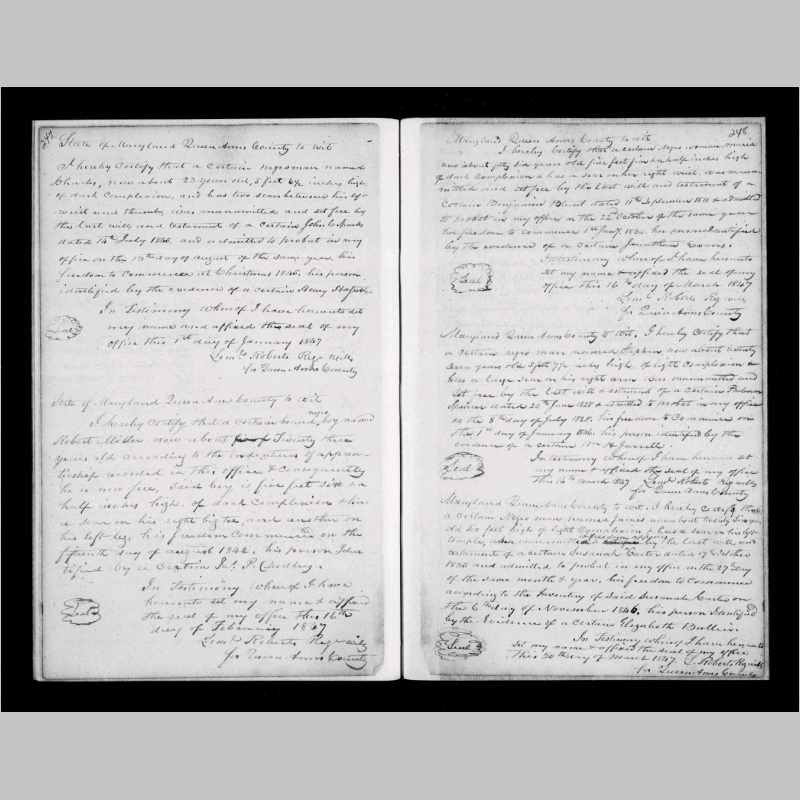 State of Maryland Queen Anns County to wit
I hereby Certify that a Certain negroman named
Charles, now about 23 years old, 5 feet 6½ inches high
of dark Complexion, and has two scars between his
wrist and thumb, was manumitted and set free by
the last will and testament of a Certain John C
dated 14th July 1840, and admitted to probat in my
office on the day of august of the same year his
freedom to Commence at Christmas 1846, his person
identified by the evidence of a Certain Henry
In Testimony whereof I have hereunto set
my name and affixed the seal of my
office this 1st day of January 1847
Seal
Leml Roberts Regr Wills
for Queen Anns County
State of Maryland Queen Ann County to wit
I hereby Certify that a Certain bound negro boy named
Robert now about Twenty three
years old according to the indentures of appren-
ticeship recorded in this office & Consequently
he is now free, Said boy is five feet six &
half inches high, of dark Complexion & has
a scar on his right big toe and another on
his left leg, his freedom Commencing on the
fifteenth day of august 1842. his person Iden
tified by a Certain P.
In Testimony whereof I have
hereunto set my name & affixed
the seal of my office this 16th
day of February 1847
Seal
Leml Roberts Regr
for Queen Anns County
248
Maryland Queen Anns County to wit
I hereby Certify that a certain Negro woman
now about fifty six years old five feet five & half inches high
of dark Complexion & has a scar on her right wrist, was manu
mitted and set free by the last will and testament of a
Certain Benjamin dated 11th September & admitted
to probat in my office on the 22d October of the same year
her freedom to commence 1st Jany her person identified
by the evidence of a Certain Jonathan
In testimony whereof I have hereunto
set my name & affixed the seal of my
office this 16th day of March 1847
Seal
Leml Roberts Reg
for Queen Anns County
Maryland Queen Anns County to wit. I hereby Certify that
a Certain negro man named Stephen now about twenty
seven years old 5 feet 7½ inches high of light Complexion &
has a large scar on his right arm was manumitted and
set free by the last will & testament of a Certain
dated 20th June 1820 & admitted to probat in my office
on the 8th day of July 1820, his freedom to Commence on
the 1st day of January his person identified by the
evidence of a Certain Wm H Jarrell.
In testimony whereof I have hereunto set
my name & affixed the seal of my office
this 16th march 1847 Leml Roberts
Seal
for Queen Anns County
Maryland Queen Anns County to wit, I hereby Certify that
a Certain Negro man named James now about twenty
old feet high of light Complexion & has a scar on his left
by the last will and
testament of a Certain Susanah Carter dated 17th October
and admitted to probat in my office on the 27th day
of the same month & year, his freedom to Commence
according to the Inventory of said Susanah Carter on
the 6th day of November 1846, his person Identified
by the Evidence of a Certain Elizabeth
In Testimony whereof I have hereunto
set my name & affixed the seal of my office
Seal
this 30th day of March 1847. L. Roberts
for Queen Anns County